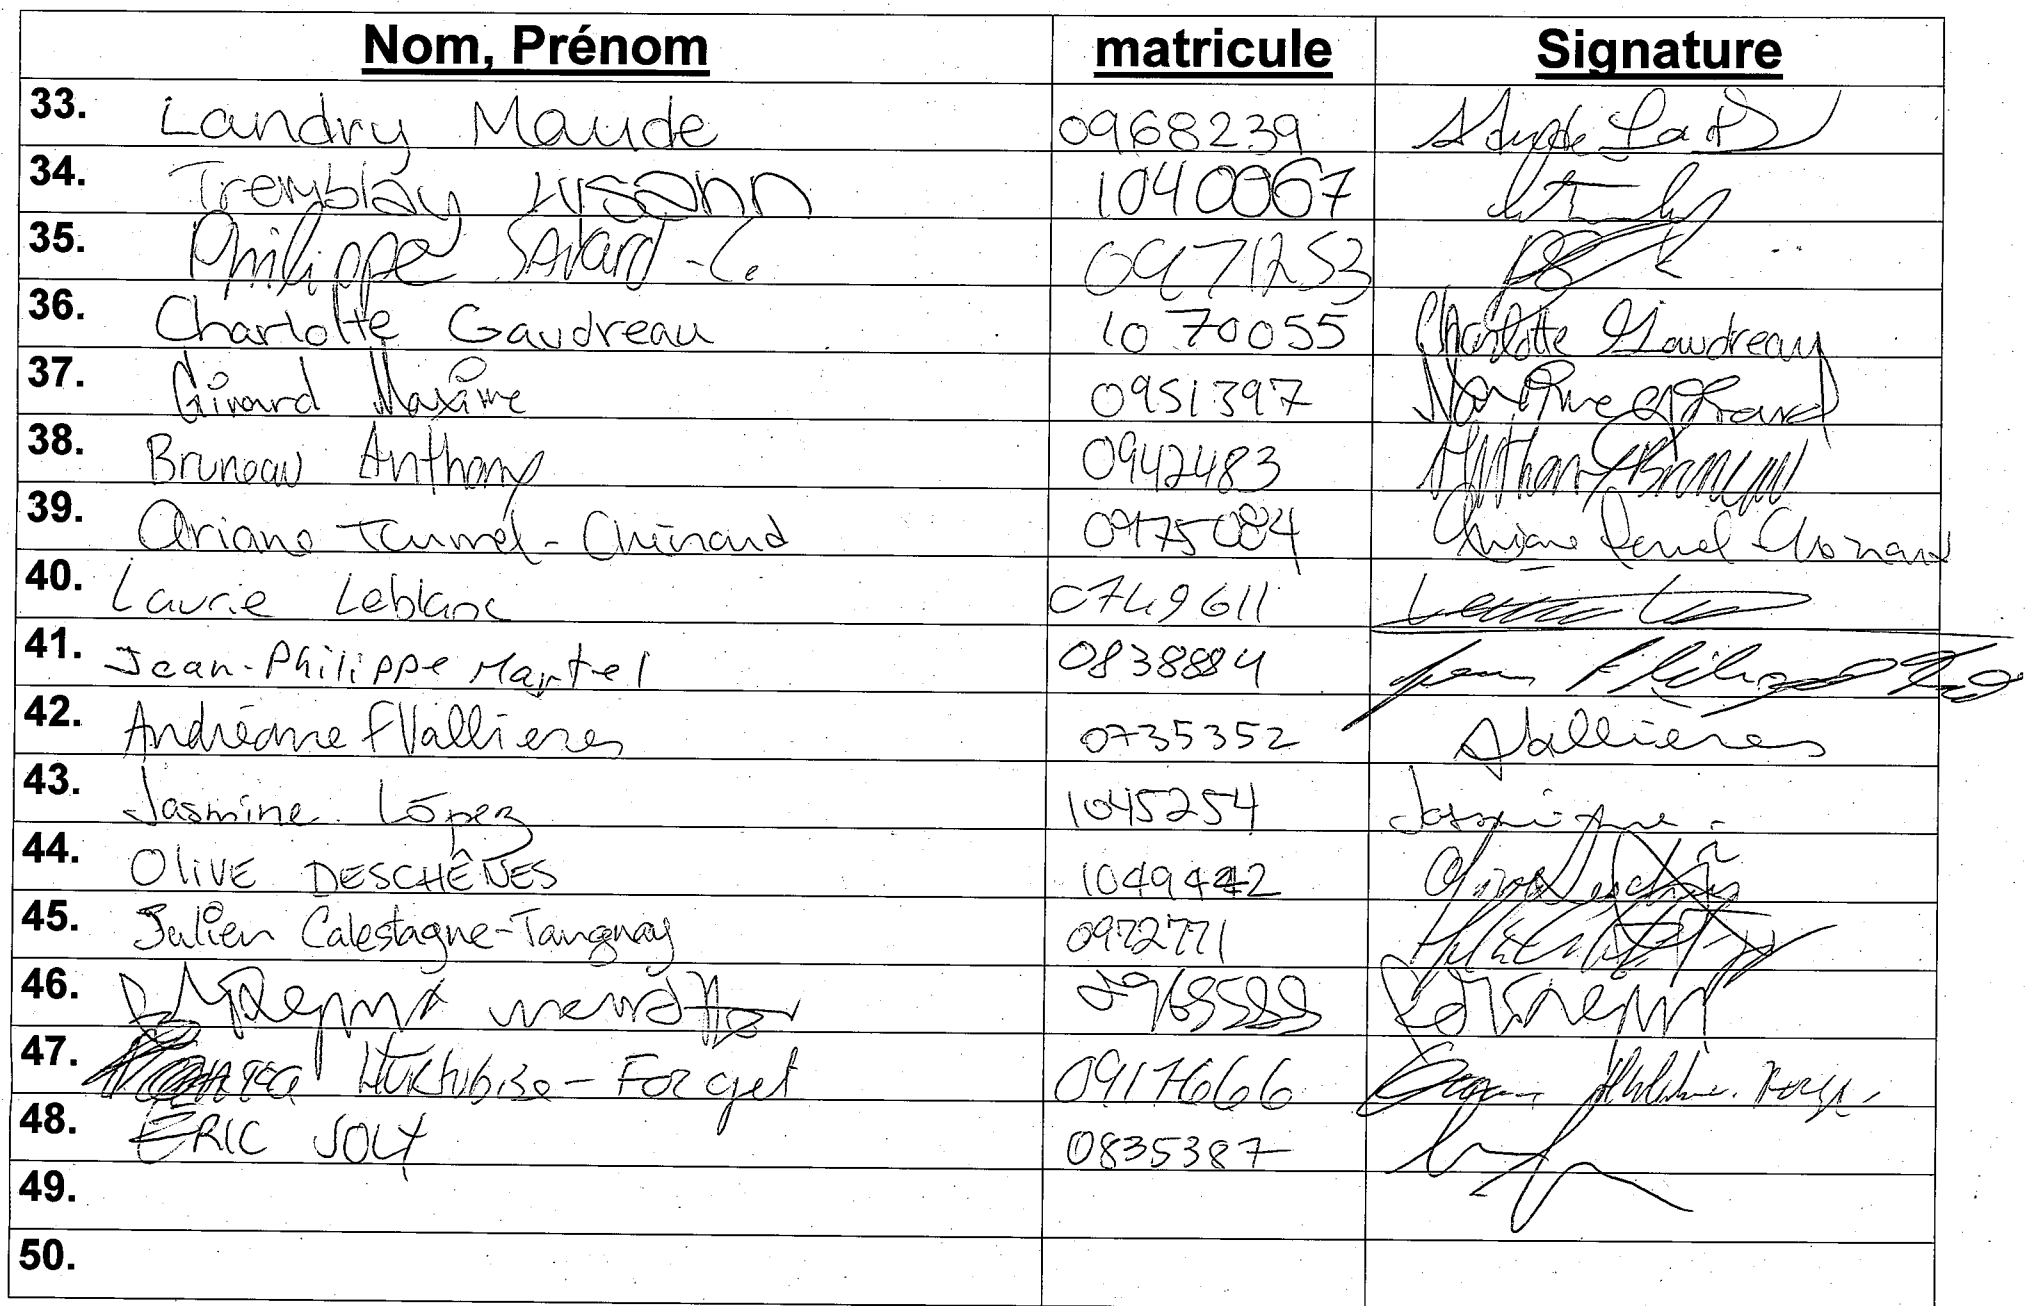 Nom, Prénom matricule Signature
33. Landry Maude 0968239
34. Tremblay Lysann 1040067
35. Philippe Savard-C. 0971253
36. Charlotte Gaudreau 1070055 Charlotte Gaudreau
37. Girard Maxime 0951397 Maxime Girard
38. Bruneau Anthony 0942483 Anthony Bruneau
39. Ariane Turmel-Chénard 0975084
40. Laurie Leblanc 0749611
41. Jean-Philippe Martel 0838884
42. Andréanne FVallieres 0735352 AVallieres
43. Jasmine López 1045254
44. OLIVE DESCHÊNES 1049442
45. Julien Calestagne-Tanguay 0972771
46.
47. Hurtubise-Forget 0917666
48. ERIC JOLY 0835387
49.
50.